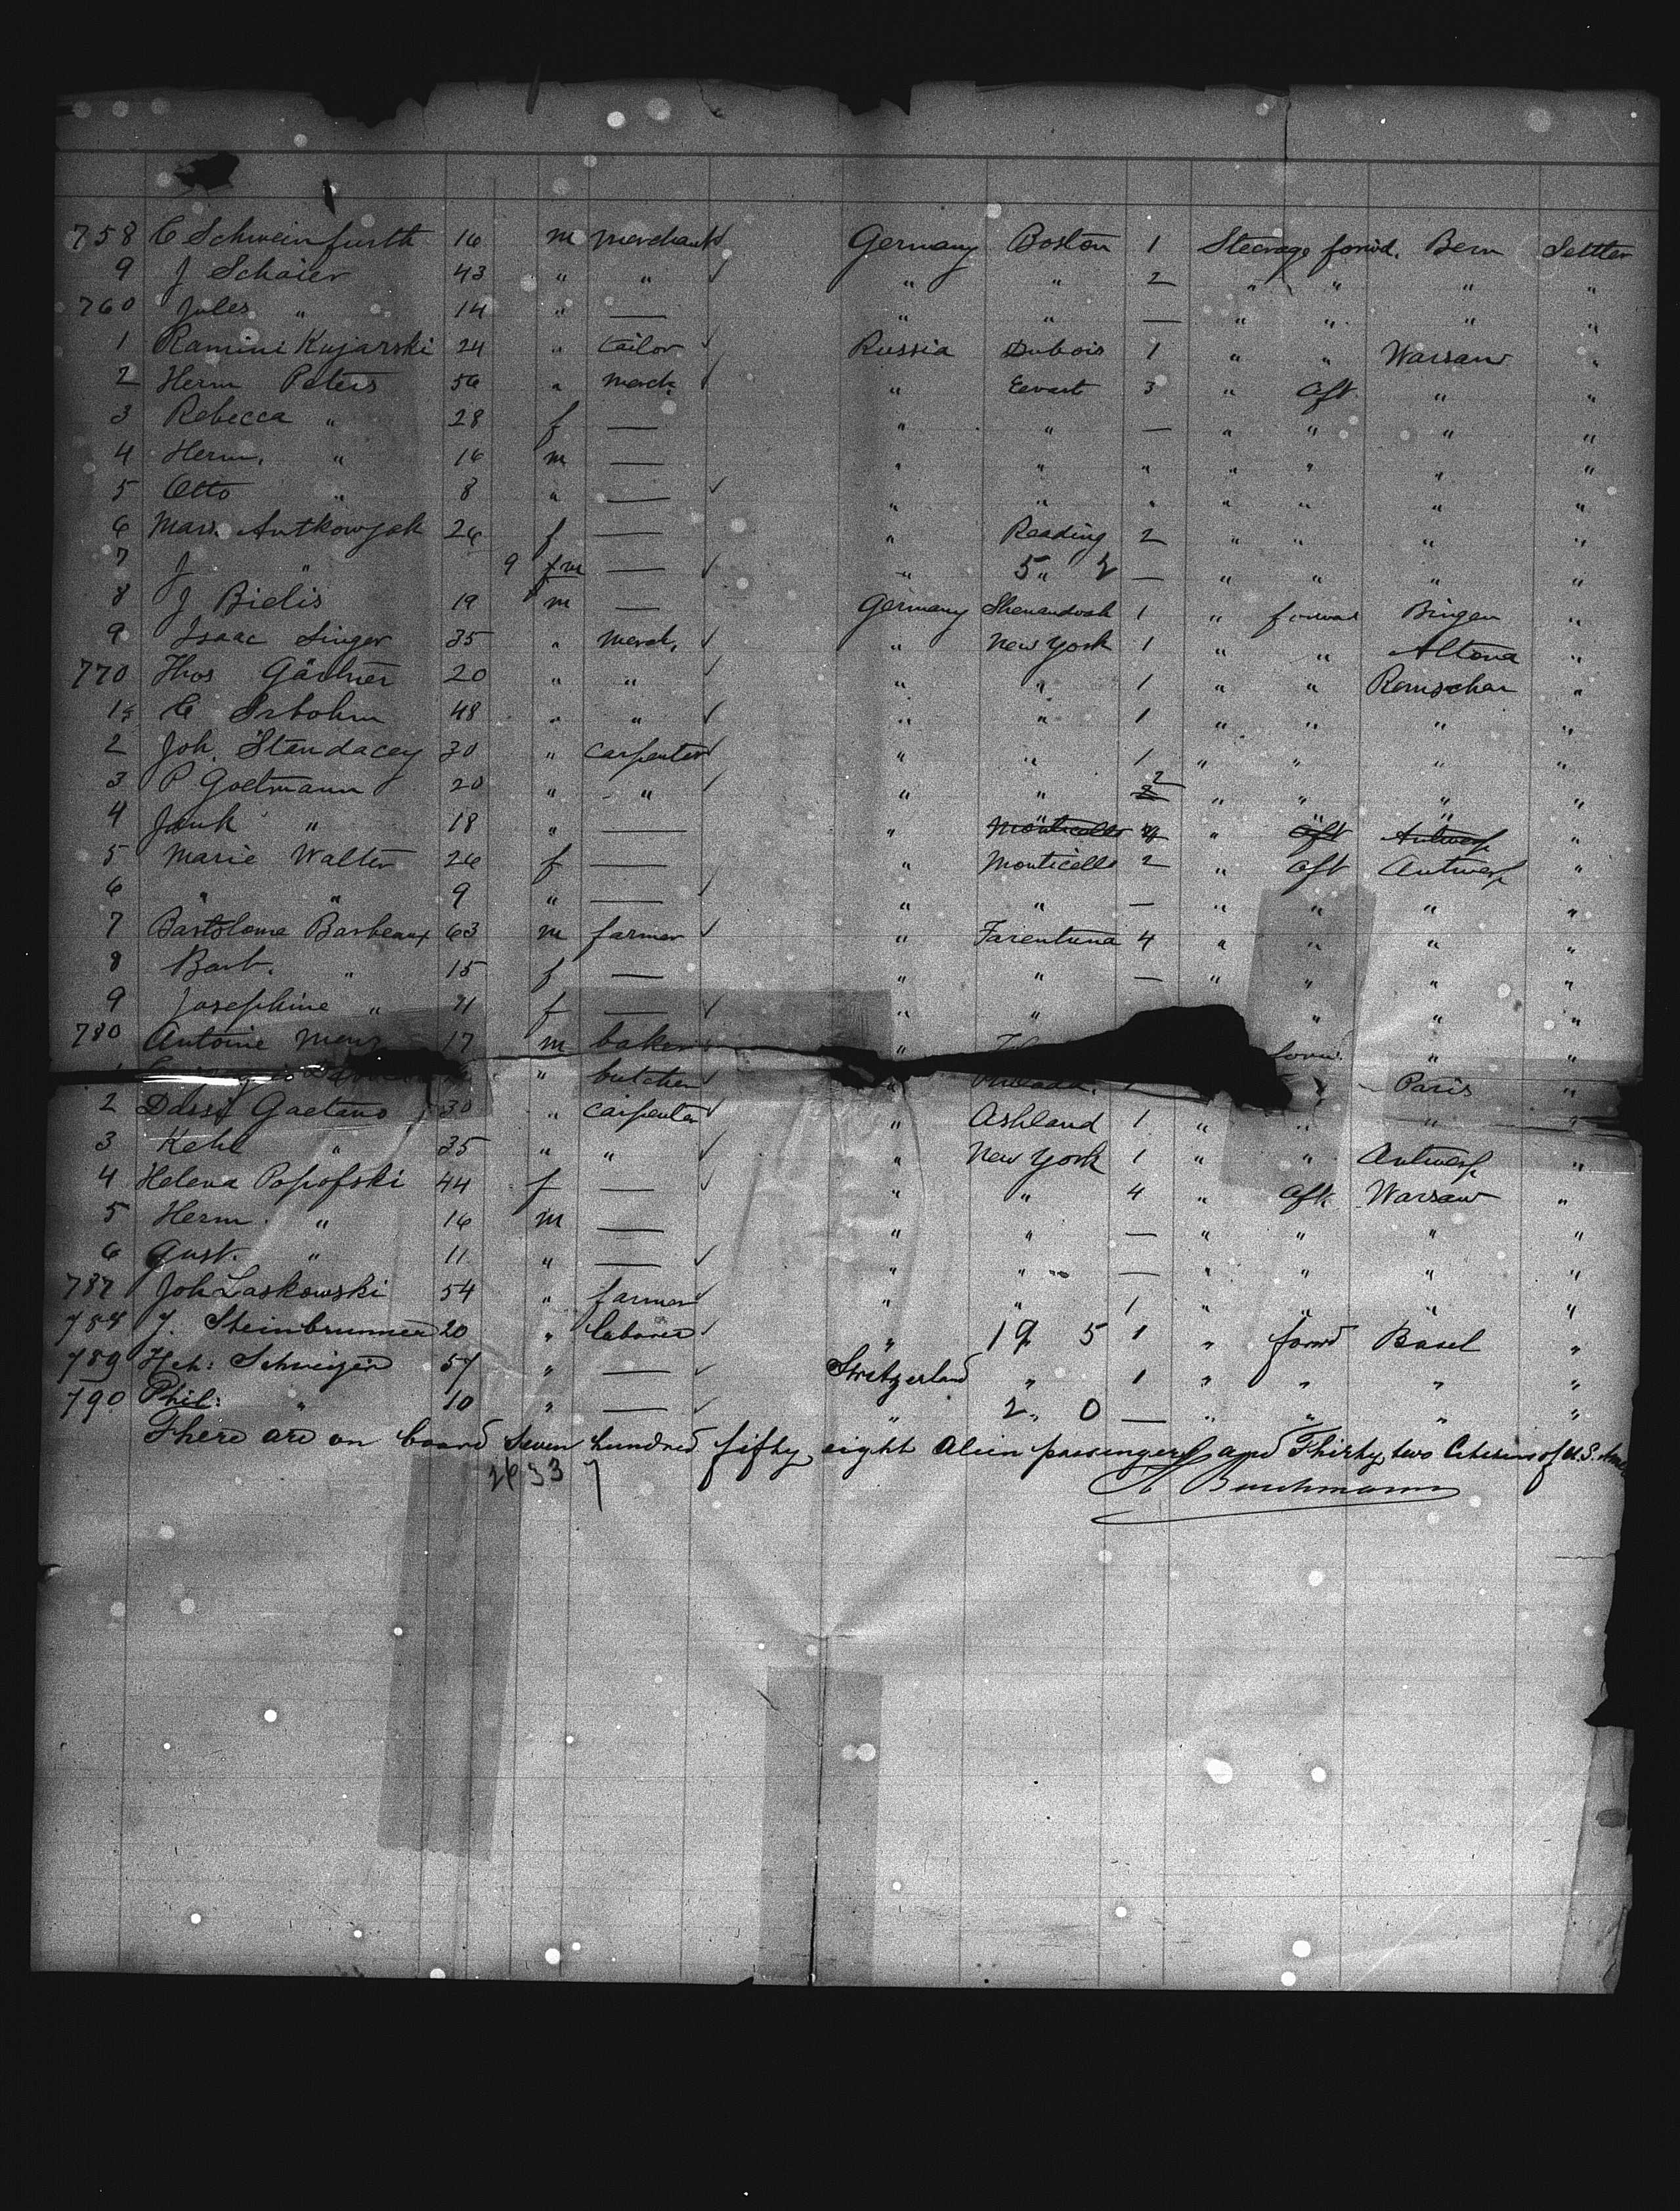 758 C Schweinfurth 16 m merchant ✓ Germany Boston 1 Steerage forwd. Bern Settler
9 J Schaier 43 " " ✓ " " 2 " " " "
760 Jules " 14 " — " " — " " " "
1 Ramini Kujarski 24 " tailor ✓ Russia Dubois 1 " " Warsaw "
2 Herm Peters 56 " merch ✓ " Ewart 3 " aft " "
3 Rebecca " 28 f — " " — " " " "
4 Herm. " 16 m — " " " " " " "
5 Otto " 8 " — ✓ " " " " " " "
6 Mar. Antkowjak 26 f — " Reading 2 " " " "
7 J " 9 m — ✓ " 5 " 2 — " " " "
8 J Bielis 19 m — Germany Shenandoah 1 " forward Bingen "
9 Isaac Singer 35 " merch. ✓ " New York 1 " " Altona "
770 Thos Gärtner 20 " " ✓ " " 1 " " "
1 C 48 " " ✓ " " 1 " " " "
2 Joh. Standacey 30 " carpenter ✓ " " 1 " " " "
3 P Goetmann 20 " " ✓ " " 2 " " " "
4 " 18 " — " Monticello " aft Antwerp "
5 Marie Walter 26 f — " Monticello 2 " aft Antwerp "
6 " " 9 " — ✓ " " — " " " "
7 Bartolome Barbeaux 63 m farmer ✓ " 4 " " " "
8 Barb. " 15 f — " " — " " " "
9 Josephine " 11 f — ✓ " " " " "
780 Antoine 17 m baker " forw. " "
" butcher ✓ " Philada. Paris "
2 Gaetano 30 " carpenter ✓ " Ashland 1 " " " "
3 Kehl " 35 " " ✓ " New York 1 " " Antwerp "
4 Helena Popofski 44 f — ✓ " " 4 " aft Warsaw "
5 Herm " 16 m — " " — " " " "
6 Gust. " 11 " — ✓ " " — " " " "
787 Joh Laskowski 54 " farmer ✓ " " 1 " " " "
788 J. Steinbrunner 20 " laborer ✓ " 19 5 1 " forwd Basel "
789 Hch: Schweizer 57 " — ✓ Switzerland " 1 " " " "
790 Phil: " 10 " — ✓ " 2 " 0 — " " " "
There are on board Seven hundred fifty eight Alien passengers and Thirty two Citizens of U.S.